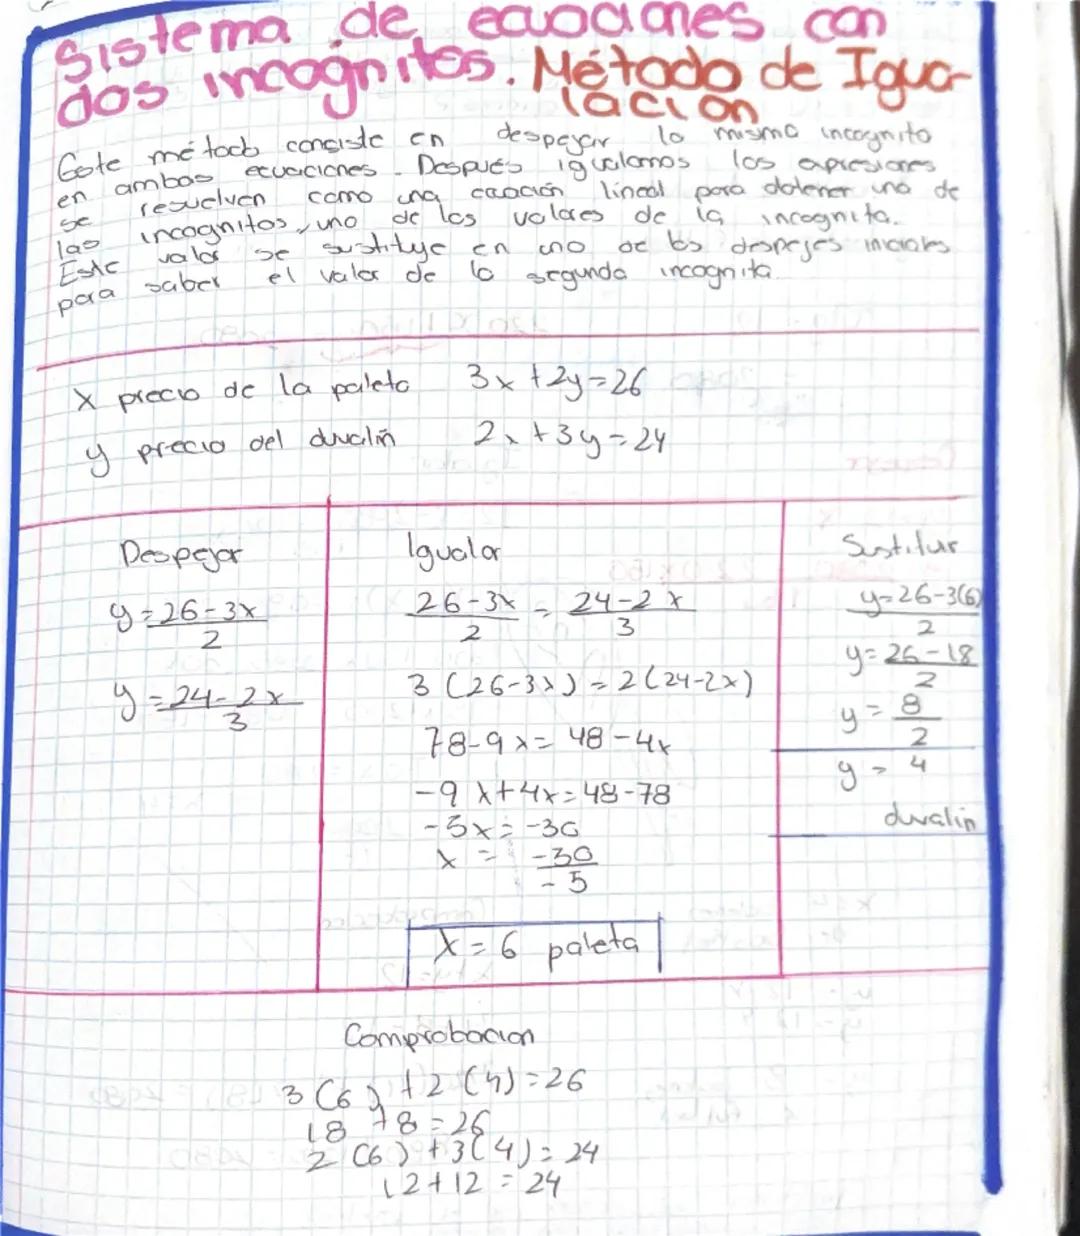 Sistema de ecuaciones con
dos incognitas. Método de Igua-
lacion
Este método consiste en despejar la misma incognita
en ambas ecuaciones. Después igualamos las expresiones
se resuelven como una ecuación lineal para obtener una de
las incognitas, uno de los valores de la incognita.
Este valor se sustitye en uno de los despejes iniciales
para saber el valor de la segunda incognita.
X precio de la paleta 3x+2y=26
y precio del duvalin 2x+3y=24
Despejar
y=26-3x
2
y=24-2x
3
Igualar
26-3x = 24-2x
2 3
3(26-3x)=2(24-2x)
78-9x=48-4x
-9x+4x=48-78
-5x=-30
x = -30
-5
X=6 paleta
Sustituir
y=26-3(6)
2
y=26-18
2
y=8
2
y=4
duvalin
Comprobacion
3(6)+2(4)=26
18+8=26
2(6)+3(4)=24
12+12=24